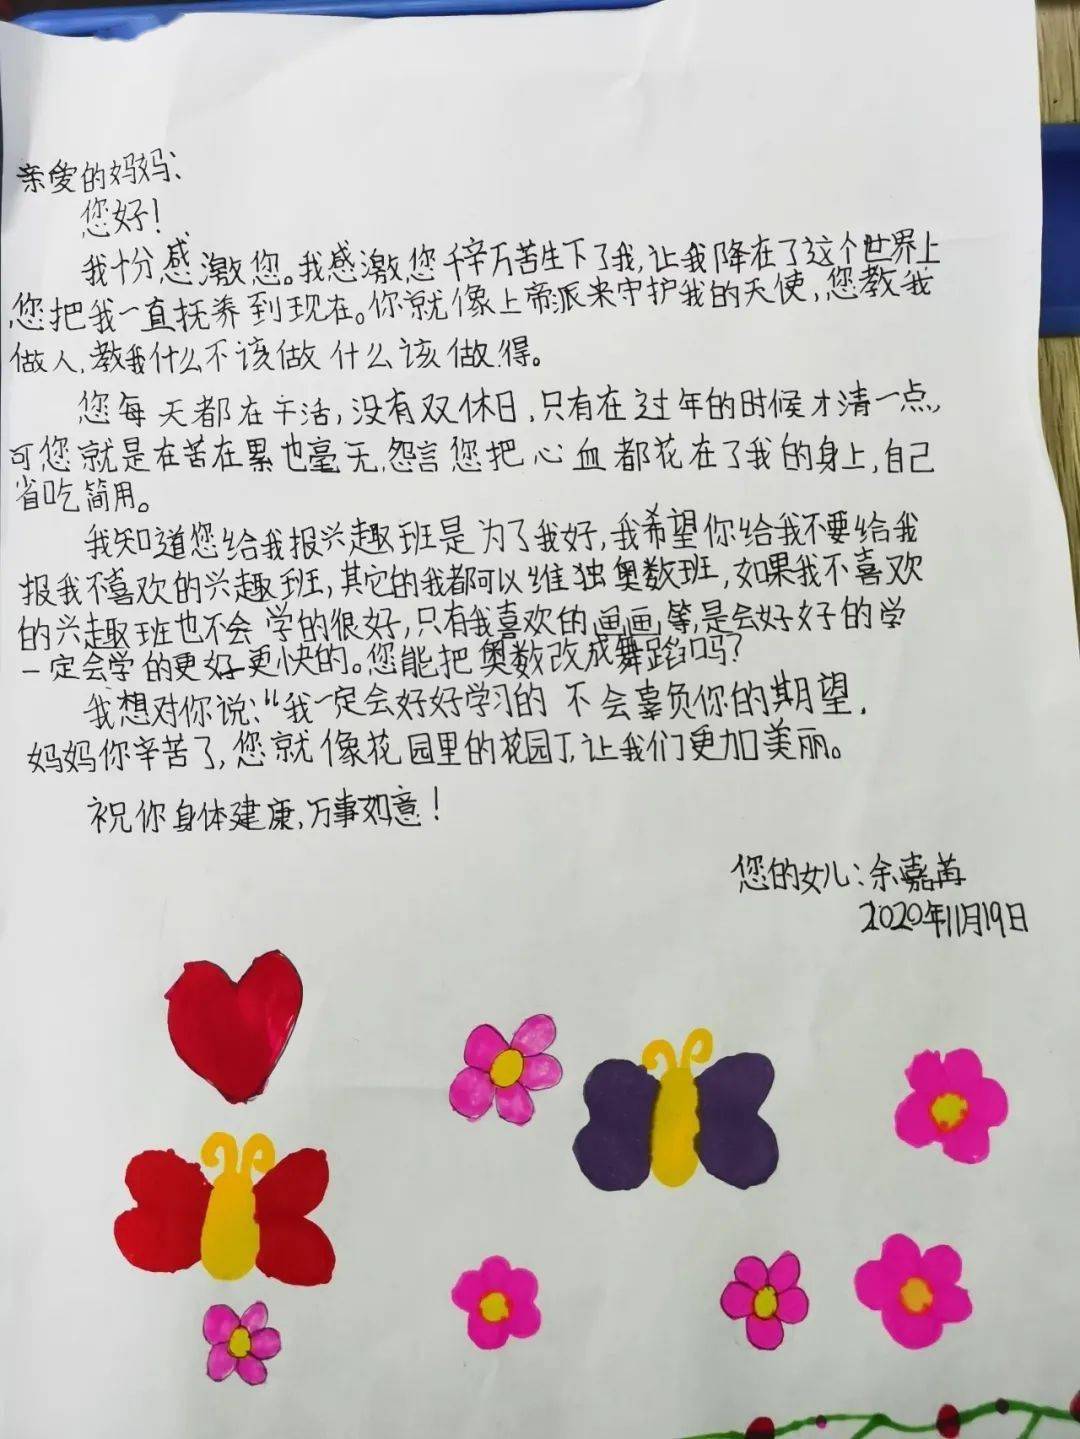 亲爱的妈妈:
您好!
我十分感激您。我感激您千辛万苦生下了我,让我降在了这个世界上
您把我一直抚养到现在。你就像上帝派来守护我的天使,您教我
做人,教我什么不该做什么该做得。
您每天都在干活,没有双休日,只有在过年的时候才清一点,
可您就是在苦在累也毫无怨言您把心血都花在了我的身上,自己
省吃简用。
我知道您给我报兴趣班是为了我好,我希望你给我不要给我
报我不喜欢的兴趣班,其它的我都可以维独奥数班,如果我不喜欢
的兴趣班也不会学的很好,只有我喜欢的画画,等,是会好好的学
一定会学的更好更快的。您能把奥数改成舞蹈吗?
我想对你说:“我一定会好好学习的不会辜负你的期望,
妈妈你辛苦了,您就像花园里的花园丁,让我们更加美丽。
祝你身体建康,万事如意!
您的女儿:余嘉苒
2020年11月19日